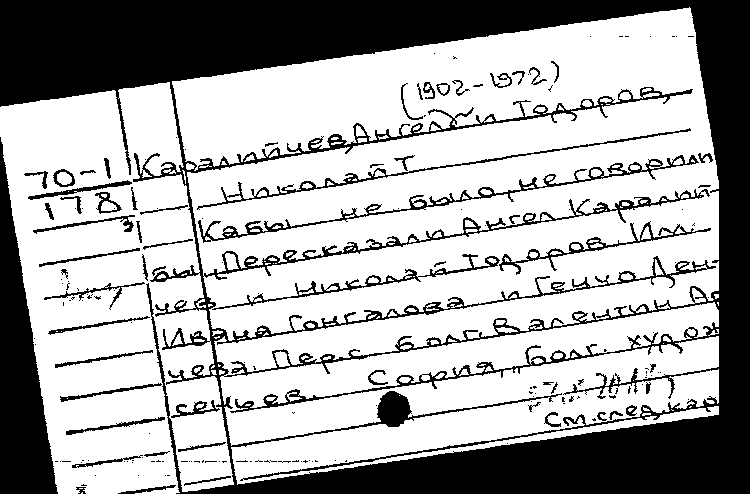 (1902-1972)
Каралийчев, Ангел и Тодоров,
70-1
Николай Т
178
3
Кабы не было, не говорили
бы. Пересказали Ангел Каралий-
чев и Николай Тодоров. Илл.
Ивана Гонгалова и Генчо Ден-
чева. Пер. с болг. Валентин Ар
сеньев. София, "Болг. худож
См. след. кар